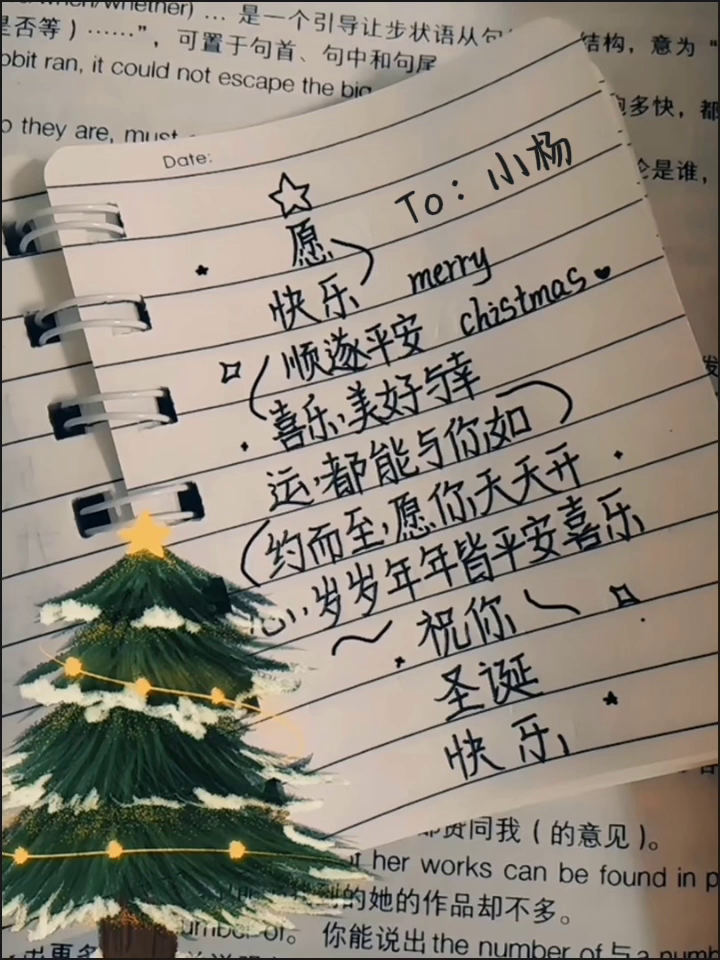 /when/whether) … 是一个引导让步状语从句
结构，意为“
是否等）……”，可置于句首、句中和句尾
obbit ran, it could not escape the big
跑多快，都
o they are, must
论是谁，
Date:
To：小杨
愿
快乐 merry
顺遂平安 chistmas
喜乐，美好与幸
运，都能与你如
约而至，愿你天天开
心，岁岁年年皆平安喜乐
祝你
圣诞
快乐，
发
赞同我（的意见）。
her works can be found in p
的她的作品却不多。
number of。 你能说出the number of与a numb